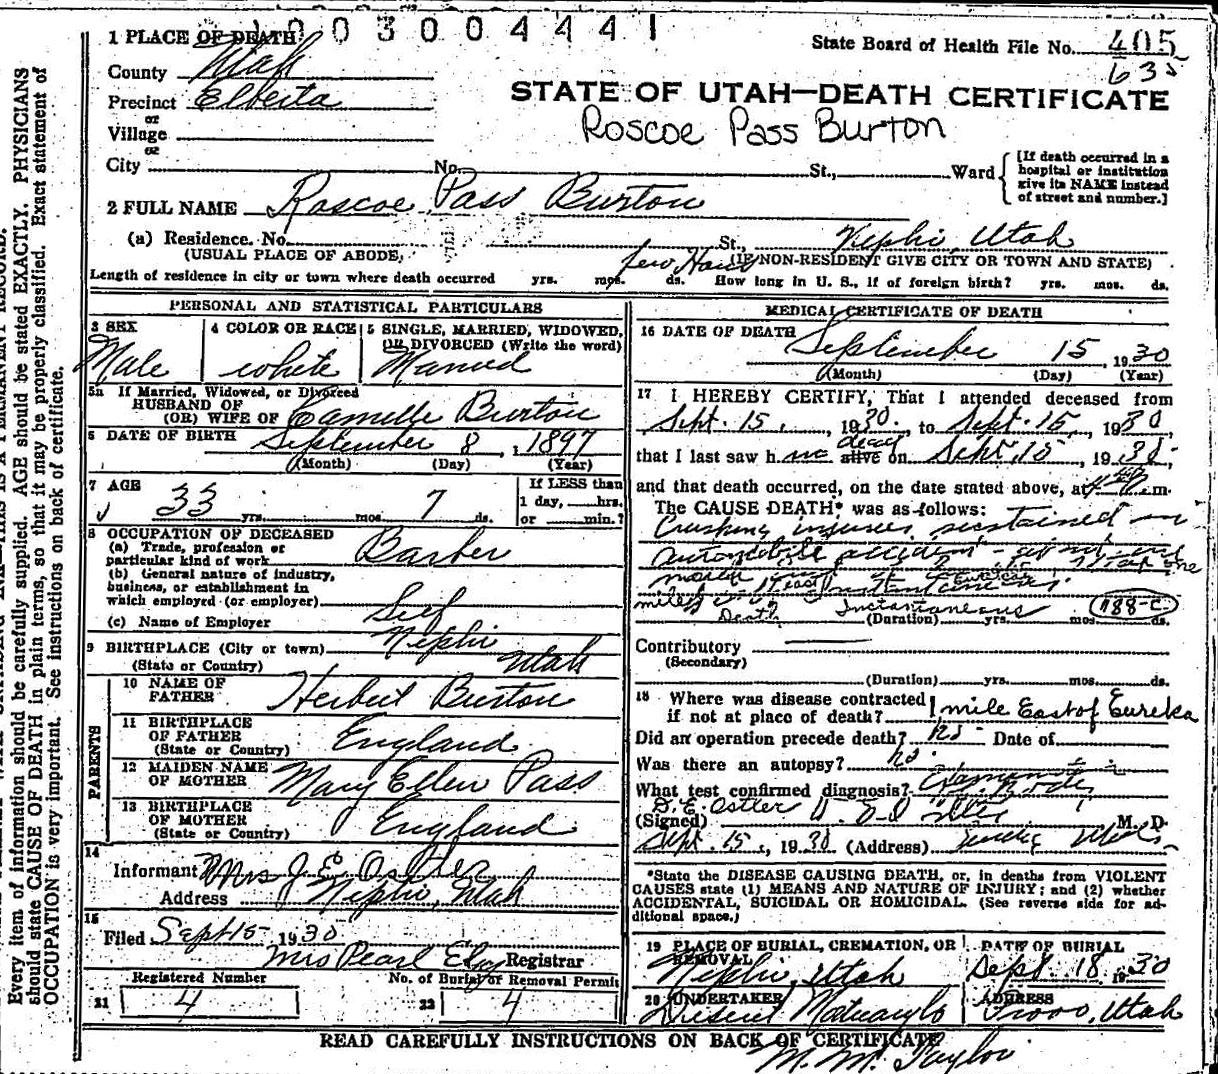 1003004441
1 PLACE OF DEATH
State Board of Health File No. 405
635
County Utah
Precinct Elberta
STATE OF UTAH—DEATH CERTIFICATE
or
Village
Roscoe Pass Burton
or
City No. St., Ward
[If death occurred in a
hospital or institution
give its NAME instead
of street and number.]
2 FULL NAME Roscoe Pass Burton
(a) Residence. No. St., Nephi, Utah
(USUAL PLACE OF ABODE, (IF NON-RESIDENT GIVE CITY OR TOWN AND STATE)
Length of residence in city or town where death occurred yrs. mos. few Hours ds. How long in U. S., if of foreign birth? yrs. mos. ds.
PERSONAL AND STATISTICAL PARTICULARS
3 SEX
Male
4 COLOR OR RACE
white
5 SINGLE, MARRIED, WIDOWED,
OR DIVORCED (Write the word)
Married
5a If Married, Widowed, or Divorced
HUSBAND OF
(OR) WIFE OF Camelle Burton
6 DATE OF BIRTH September 8, 1897
(Month) (Day) (Year)
7 AGE
33 yrs. mos. 7 ds.
If LESS than
1 day, hrs.
or min.?
8 OCCUPATION OF DECEASED
(a) Trade, profession or
particular kind of work Barber
(b) General nature of industry,
business, or establishment in
which employed (or employer) Self
(c) Name of Employer
9 BIRTHPLACE (City or town) Nephi
(State or Country) Utah
PARENTS
10 NAME OF
FATHER Herbert Burton
11 BIRTHPLACE
OF FATHER
(State or Country) England
12 MAIDEN NAME
OF MOTHER Mary Ellen Pass
13 BIRTHPLACE
OF MOTHER
(State or Country) England
14
Informant Mrs J. E. Ostler
Address Nephi, Utah
15
Filed Sept 15 1930
Mrs Pearl Registrar
Registered Number
21 4
No. of Burial or Removal Permit
22 4
MEDICAL CERTIFICATE OF DEATH
16 DATE OF DEATH September 15, 1930
(Month) (Day) (Year)
17 I HEREBY CERTIFY, That I attended deceased from
Sept. 15, 1930, to Sept. 15, 1930,
dead
that I last saw h im alive on Sept. 15, 1930,
and that death occurred, on the date stated above, at m.
The CAUSE DEATH* was as follows:
Crushing injuries sustained in
automobile accident
Death Instantaneous 188-c
(Duration) yrs. mos. ds.
Contributory
(Secondary)
(Duration) yrs. mos. ds.
18 Where was disease contracted
if not at place of death? 1 mile East of Eureka
Did an operation precede death? No Date of
Was there an autopsy? No.
What test confirmed diagnosis?
D. E. Ostler
(Signed) M. D.
Sept. 15, 1930 (Address)
*State the DISEASE CAUSING DEATH, or, in deaths from VIOLENT
CAUSES state (1) MEANS AND NATURE OF INJURY; and (2) whether
ACCIDENTAL, SUICIDAL OR HOMICIDAL. (See reverse side for ad-
ditional space.)
19 PLACE OF BURIAL, CREMATION, OR
REMOVAL
Nephi, Utah
DATE OF BURIAL
Sept. 18 1930
20 UNDERTAKER
Deseret Mortuary Co
ADDRESS
Provo, Utah
READ CAREFULLY INSTRUCTIONS ON BACK OF CERTIFICATE
M. M. Taylor
Every item of information should be carefully supplied. AGE should be stated EXACTLY. PHYSICIANS
should state CAUSE OF DEATH in plain terms, so that it may be properly classified. Exact statement of
OCCUPATION is very important. See instructions on back of certificate.